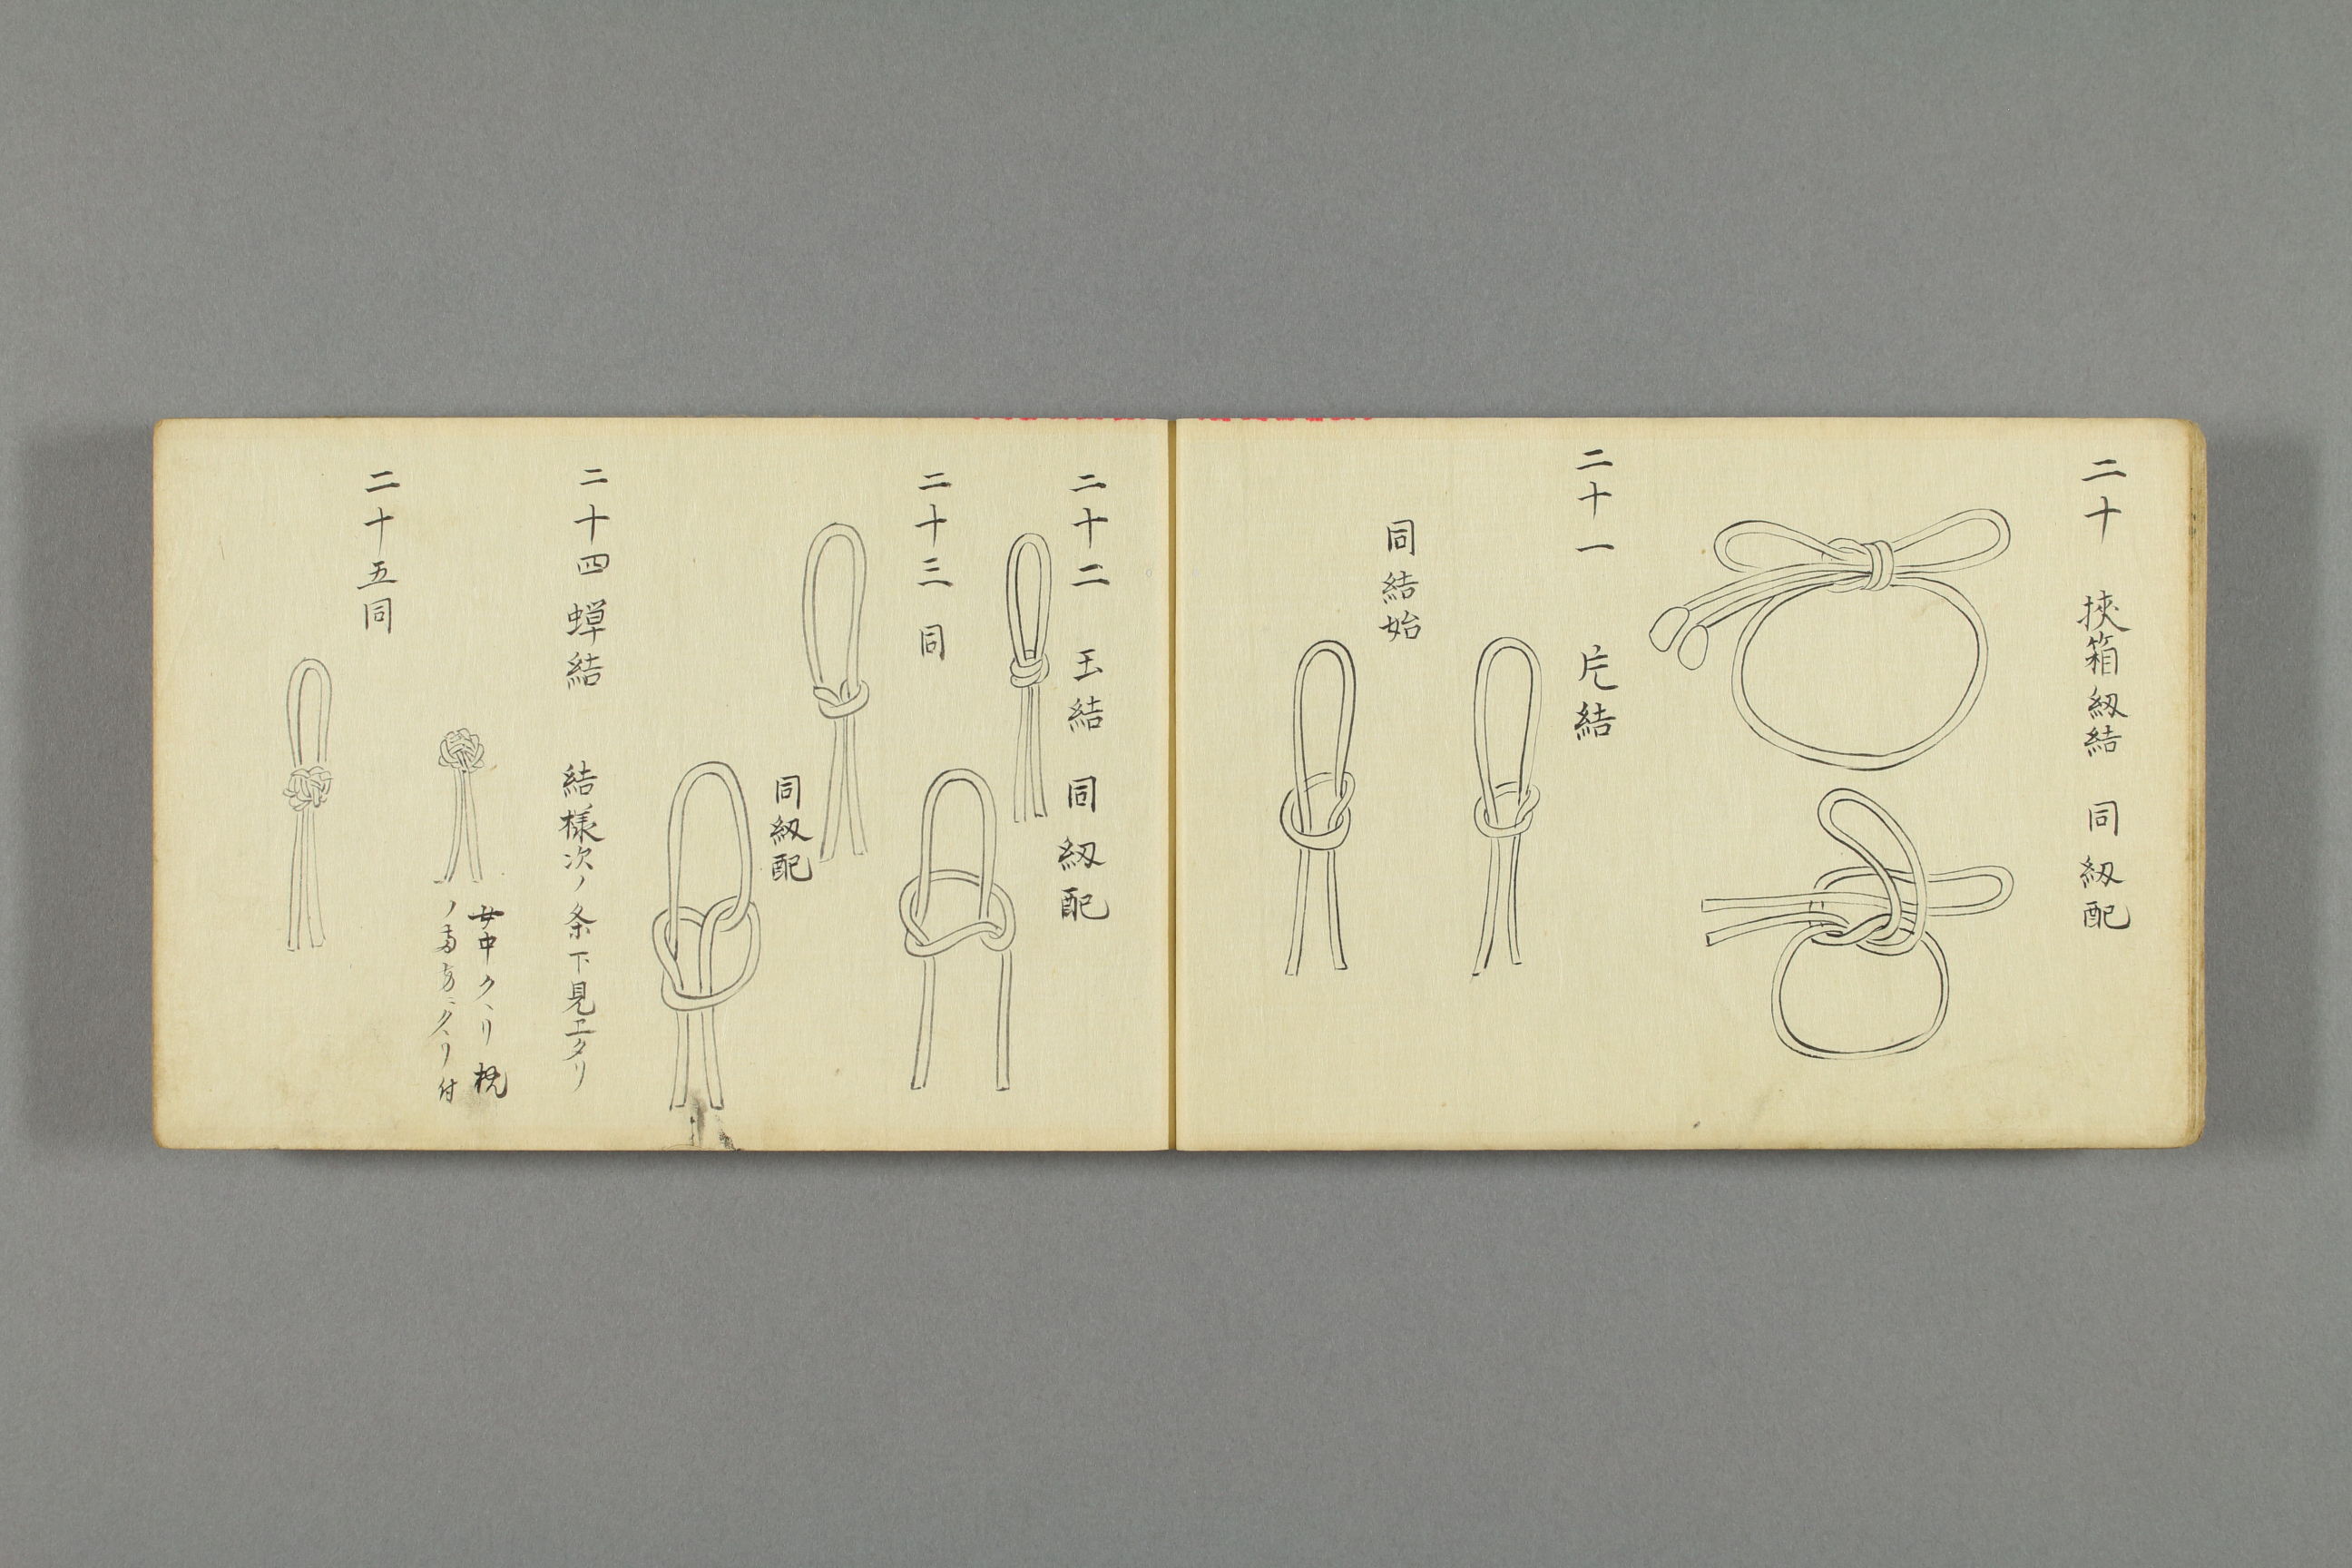 二十 挾箱紉結 同紉配
二十一 片結
同結始
二十二 玉結 同紉配
二十三 同
同紉配
二十四 蝉結 結様次ノ条下見エタリ
女中クヽリ枕
ノ両方ニクヽリ付
二十五同